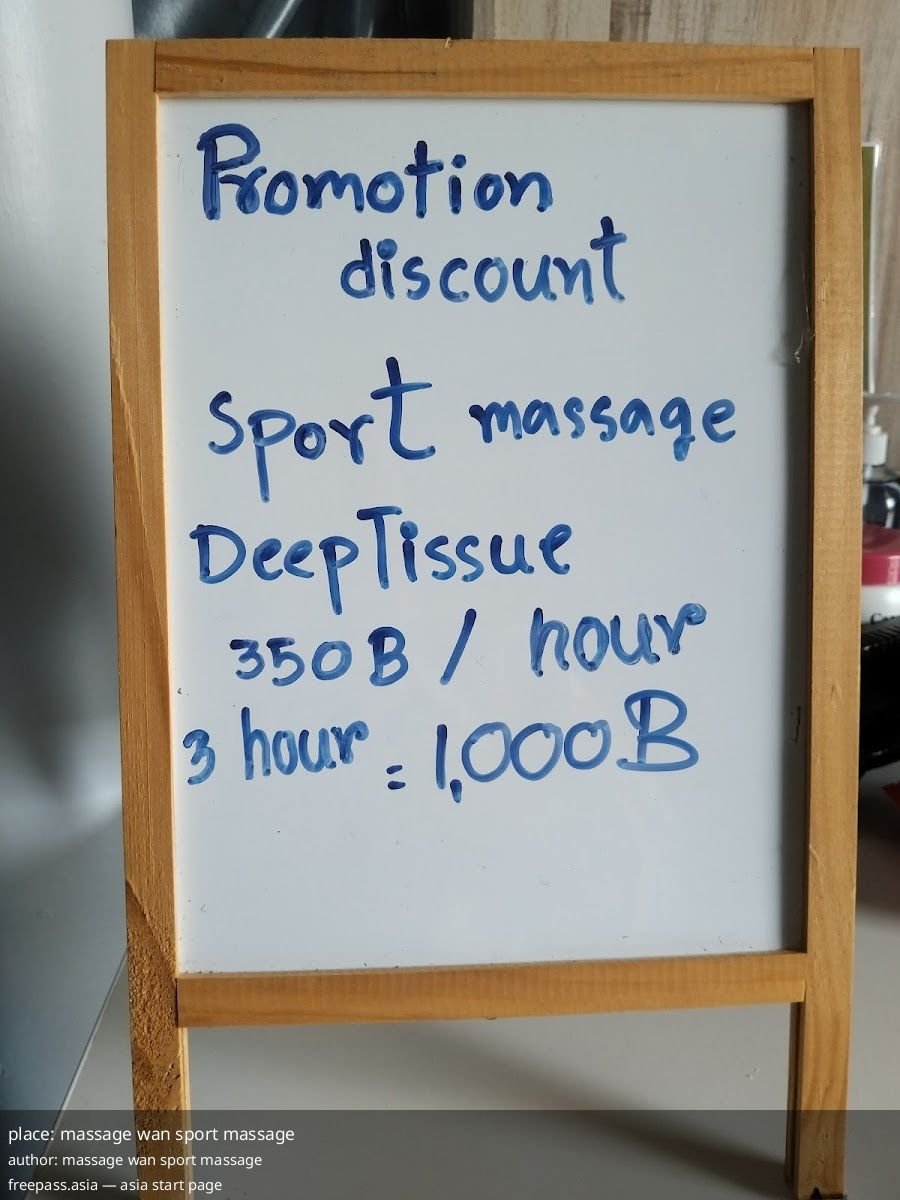 Promotion
discount
Sport massage
DeepTissue
350 B / hour
3 hour = 1,000 B
place: massage wan sport massage
author: massage wan sport massage
freepass.asia — asia start page